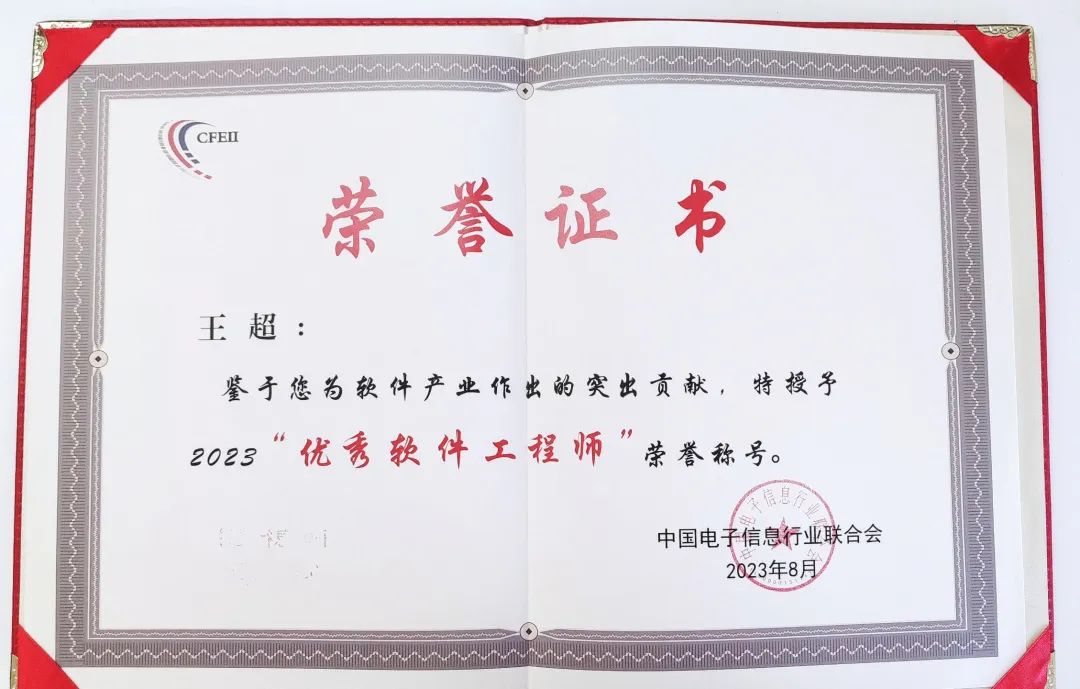 CFEII
荣誉证书
王超：
鉴于您为软件产业作出的突出贡献，特授予
2023“优秀软件工程师”荣誉称号。
中国电子信息行业联合会
2023年8月
中国电子信息行业联合会